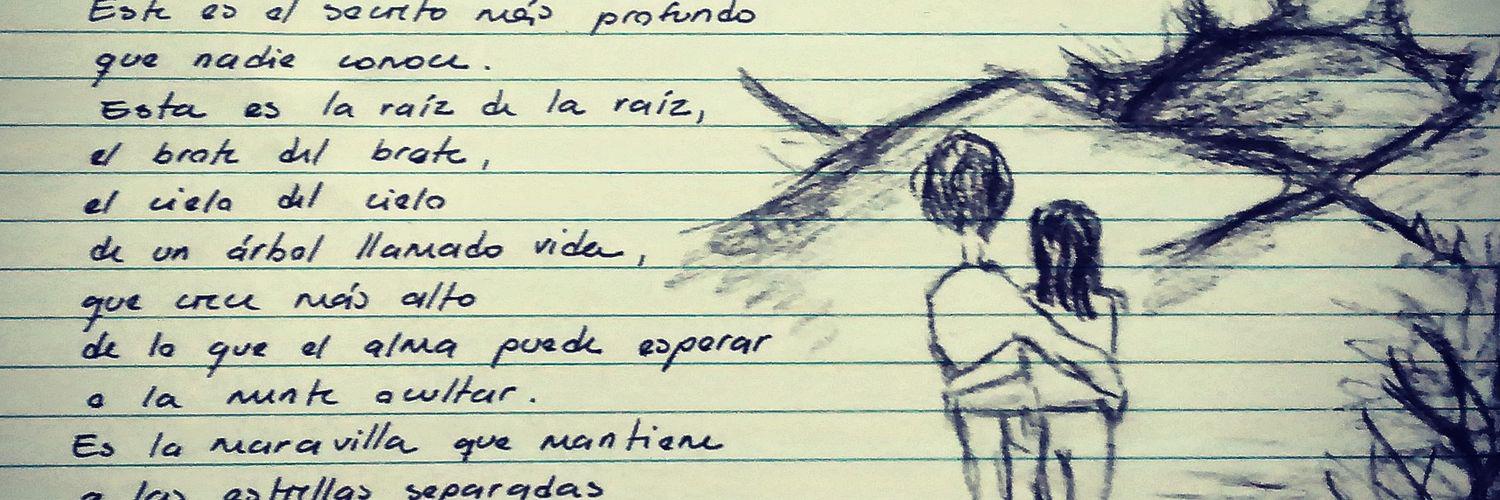 Este es el secreto más profundo
que nadie conoce.
Esta es la raíz de la raíz,
el brote del brote,
el cielo del cielo
de un árbol llamado vida,
que crece más alto
de lo que el alma puede esperar
o la mente ocultar.
Es la maravilla que mantiene
a las estrellas separadas